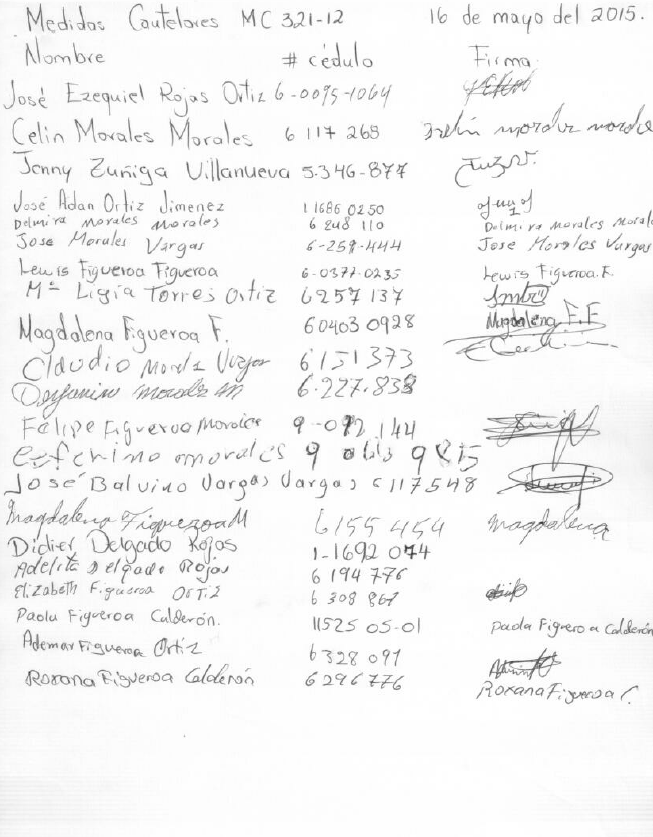 Medidas Cautelares MC 321-12 16 de mayo del 2015.
Nombre # cédula Firma
José Ezequiel Rojas Ortiz 6-0095-1064
Celin Morales Morales 6 117 268
Jenny Zuñiga Villanueva 5.346-877
José Adan Ortiz Jimenez 1 1686 0250
Delmira Morales Morales 6 248 110 Delmira Morales
Jose Morales Vargas 6-258-444 Jose Morales Vargas
Lewis Figueroa Figueroa 6-0377-0235 Lewis Figueroa.F.
Mª Ligia Torres Ortiz 6257 137
Magdalena Figueroa F. 60403 0928 Magdalena F.F
Claudio 6151373
6.227.838
Felipe Figueroa Morales 9-092 144
morales 9
José Balvino Vargas Vargas 6117548
Magdalena Figueroa M 6155 454 Magdalena
Didier Delgado Rojas 1-1692 074
Adelita Delgado Rojas 6 194 776
Elizabeth Figueroa Ortiz 6 308 867
Paola Figueroa Calderón. 11525 05-01 Paola Figueroa Calderón
Ademar Figueroa Ortiz 6328 091
Roxana Figueroa Calderón 6296776 Roxana Figueroa C.